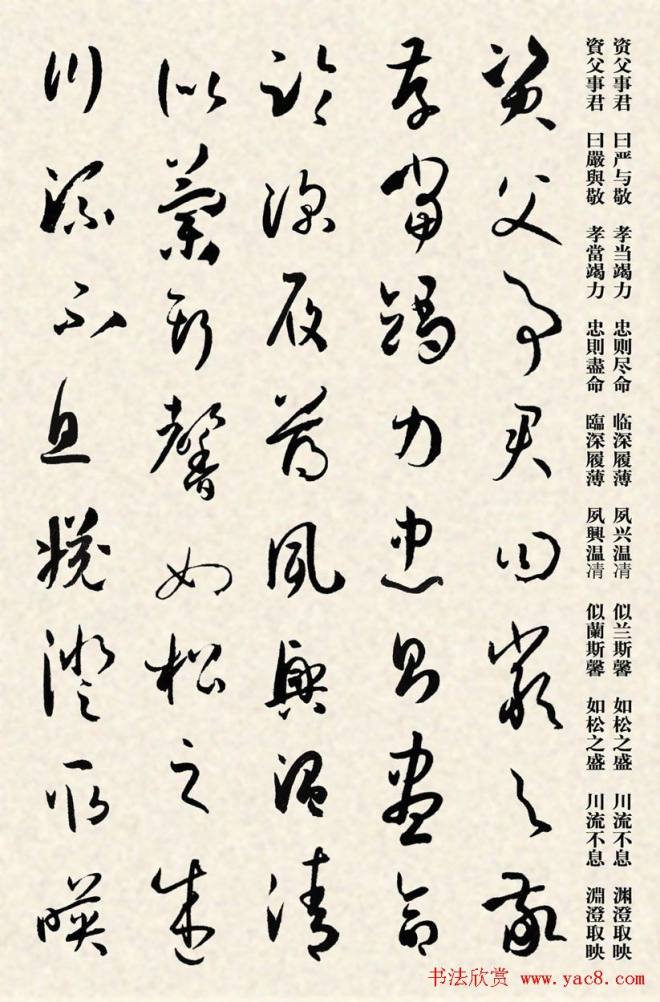 资父事君 曰严与敬 孝当竭力 忠则尽命 临深履薄 夙兴温凊 似兰斯馨 如松之盛 川流不息 渊澄取映
資父事君 曰嚴與敬 孝當竭力 忠則盡命 臨深履薄 夙興温凊 似蘭斯馨 如松之盛 川流不息 淵澄取映
資父事君曰嚴與敬
孝當竭力忠則盡命
臨深履薄夙興温清
似蘭斯馨如松之盛
川流不息淵澄取映
书法欣赏 www.yac8.com